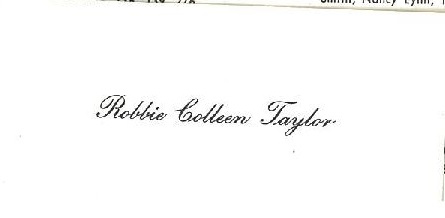 Smith, Nancy Lynn,
Robbie Colleen Taylor